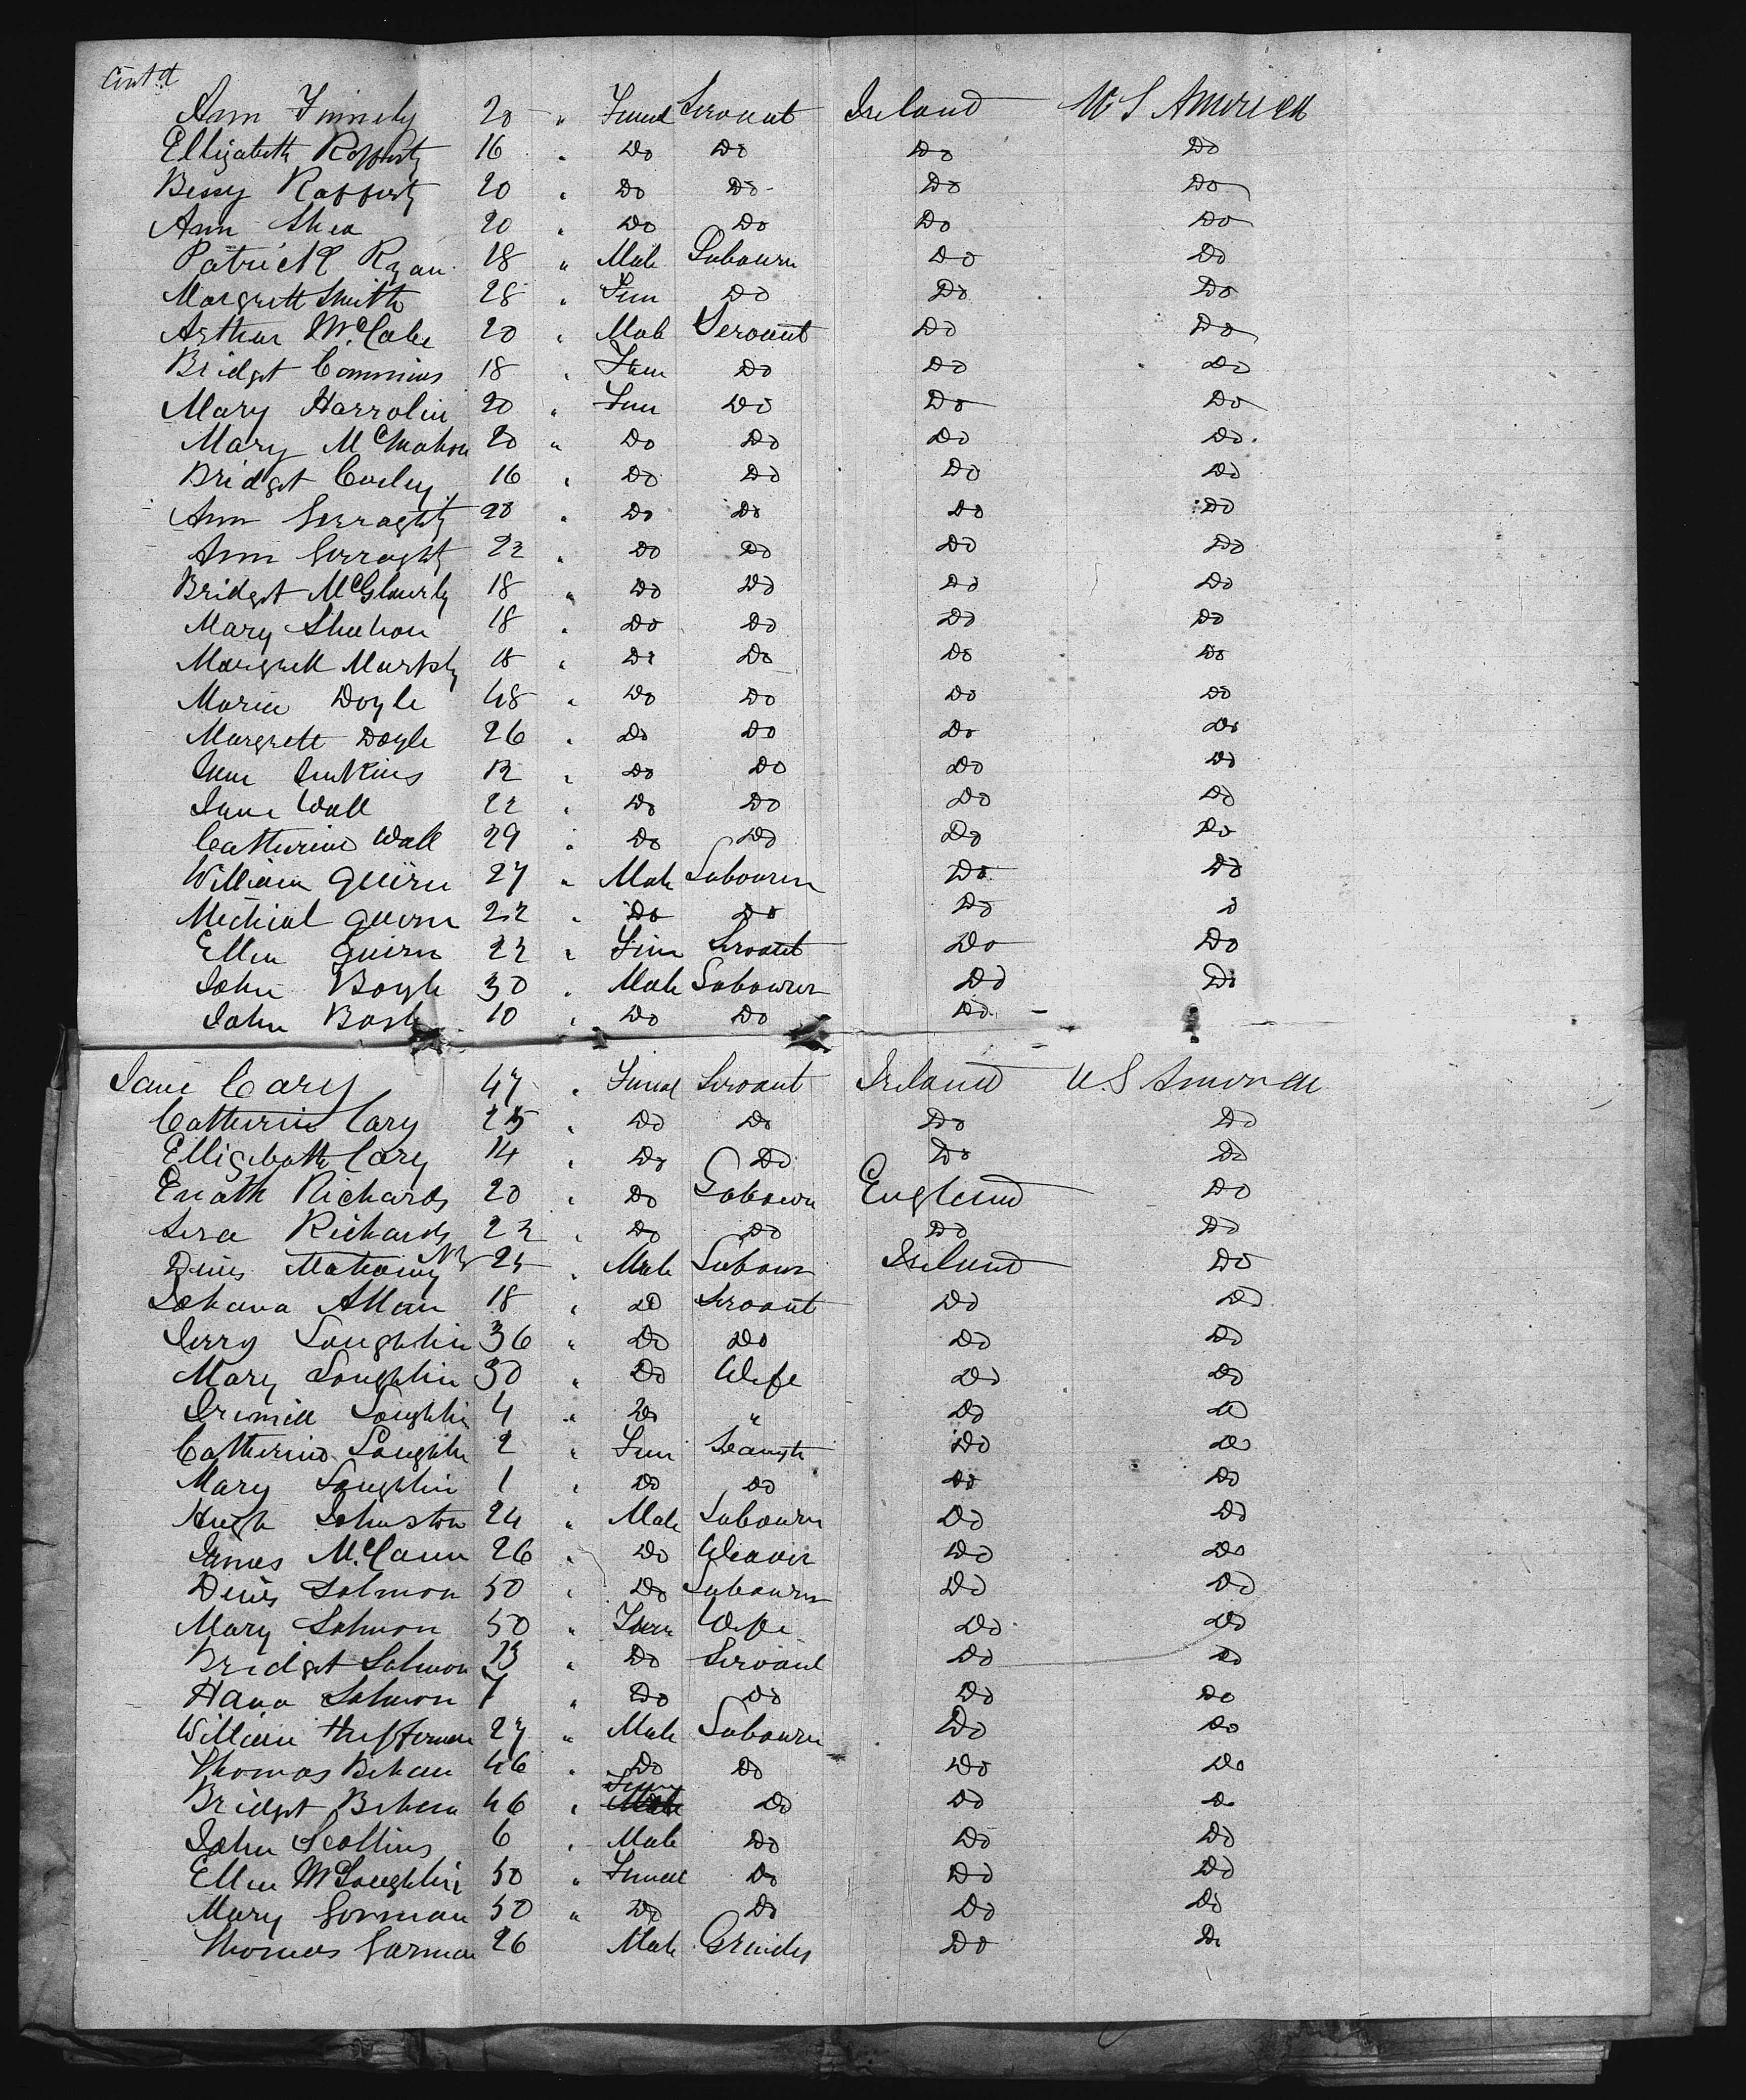 Cont'd
Ann Finnely 20 " Femal Servant Ireland U S America
Ellizabeth Rafferty 16 " Do Do Do Do
Bessy Rafferty 20 " Do Do Do Do
Ann Shea 20 " Do Do Do Do
Patrick Ryan 18 " Male Labourer Do Do
Margrett Smith 28 " Fem Do Do Do
Arthur McCabe 20 " Male Servant Do Do
Bridget Commins 18 " Fem Do Do Do
Mary Harrolin 20 " Fem Do Do Do
Mary McMahon 20 " Do Do Do Do
Bridget Corley 16 " Do Do Do Do
Ann Gerraghty 20 " Do Do Do Do
Ann Gerraghty 22 " Do Do Do Do
Bridget McGlourly 18 " Do Do Do Do
Mary Shehon 18 " Do Do Do Do
Margrett Murphy 18 " Do Do Do Do
Maria Doyle 48 " Do Do Do Do
Margrett Doyle 26 " Do Do Do Do
Jane Jenkins 12 " Do Do Do Do
Jane Wall 22 " Do Do Do Do
Catherine Wall 29 " Do Do Do Do
William Quirn 27 " Male Labourer Do Do
Michial Quirn 22 " Do Do Do Do
Ellen Quirn 22 " Fem Servant Do Do
John Boyle 30 " Male Labourer Do Do
John 10 " Do Do Do
Jane Cary 47 " Femal Servant Ireland U.S America
Catherine Cary 25 " Do Do Do Do
Elligebath Cary 14 " Do Do Do Do
Enath Richards 20 " Do Labourer England Do
Sera Richards 22 " Do Do Do Do
Denis Mahony 25 " Male Labourer Ireland Do
Johana Allan 18 " Do Servant Do Do
Jerry Loughlin 36 " Do Do Do Do
Mary Loughlin 30 " Do Wife Do Do
Loughlin 4 " Do " Do Do
Catherine Loughlin 2 " Fem Do Do
Mary Loughlin 1 " Do Do Do Do
Hugh Johnston 24 " Male Labourer Do Do
James McCann 26 " Do Weaver Do Do
Denis Salmon 50 " Do Labourer Do Do
Mary Salmon 50 " Fem Wife Do Do
Bridget Salmon 13 " Do Servant Do Do
Hana Salmon 7 " Do Do Do Do
William Heffernan 27 " Male Labourer Do Do
Thomas Behan 46 " Do Do Do Do
Bridget Behan 46 " Fem Do Do Do
John Scollins 6 " Male Do Do Do
Ellen McLoughlin 50 " Femal Do Do Do
Mary Gorman 50 " Do Do Do Do
Thomas Gorman 26 Male Grinder Do Do